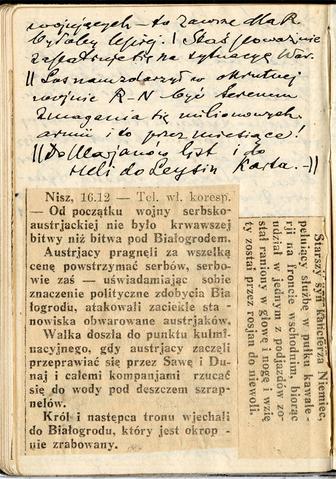 wojujących – to zawsze dla R.
byłoby lepiej. | Staś poważnie
zapatruje się na sytuację War.
|| Los nam zdarzył w okrutnej
wojnie R–N być terenem
zmagania się milionowych
armii i to przez miesiące!
|| Do Marjanów list i do
Heli do Leysin karta. –||
Nisz, 16.12 — Tel. wł. koresp.
— Od początku wojny serbsko-
austrjackiej nie było krwawszej
bitwy niż bitwa pod Białogrodem.
Austrjacy pragnęli za wszelką
cenę powstrzymać serbów, serbo-
wie zaś — uświadamiając sobie
znaczenie polityczne zdobycia Bia
łogrodu, atakowali zaciekle sta
nowiska obwarowane austrjaków.
Walka doszła do punktu kulmi-
nacyjnego, gdy austrjacy zaczęli
przeprawiać się przez Sawę i Du-
naj i całemi kompanjami rzucać
się do wody pod deszczem szrap-
nelów.
Król i następca tronu wjechali
do Białogrodu, który jest okrop
nie zrabowany.
Starszy syn kanclerza Niemiec,
pełniący służbę w pułku kawale-
rji na froncie wschodnim biorąc
udział w jednym z podjazdów zo-
stał raniony w głowę i nogę i wzię
ty został przez rosjan do niewoli.